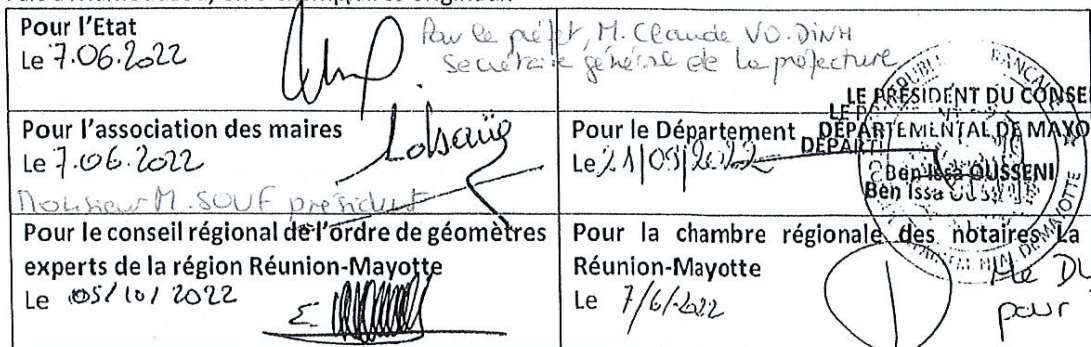 Pour l'Etat
Le 7.06.2022
Par le préfet, M. Claude VO-DINH
Secrétaire général de la préfecture
Pour l'association des maires
Le 7.06.2022
Monsieur M. SOUF président
LE PRÉSIDENT DU CONSEI
DÉPARTEMENTAL DE MAYO
Ben Issa OUSSENI
Pour le Département
Le 21/09/2022
Pour le conseil régional de l'ordre de géomètres
experts de la région Réunion-Mayotte
Le 05/10/2022
Pour la chambre régionale des notaires La
Réunion-Mayotte
Le 7/6/2022
Me DU
pour